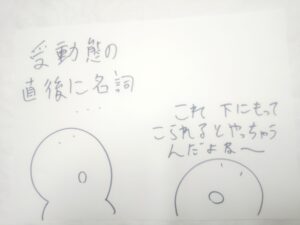 受動態の
直後に名詞
...
これ 下にもって
こられるとやっちゃう
んだよな〜